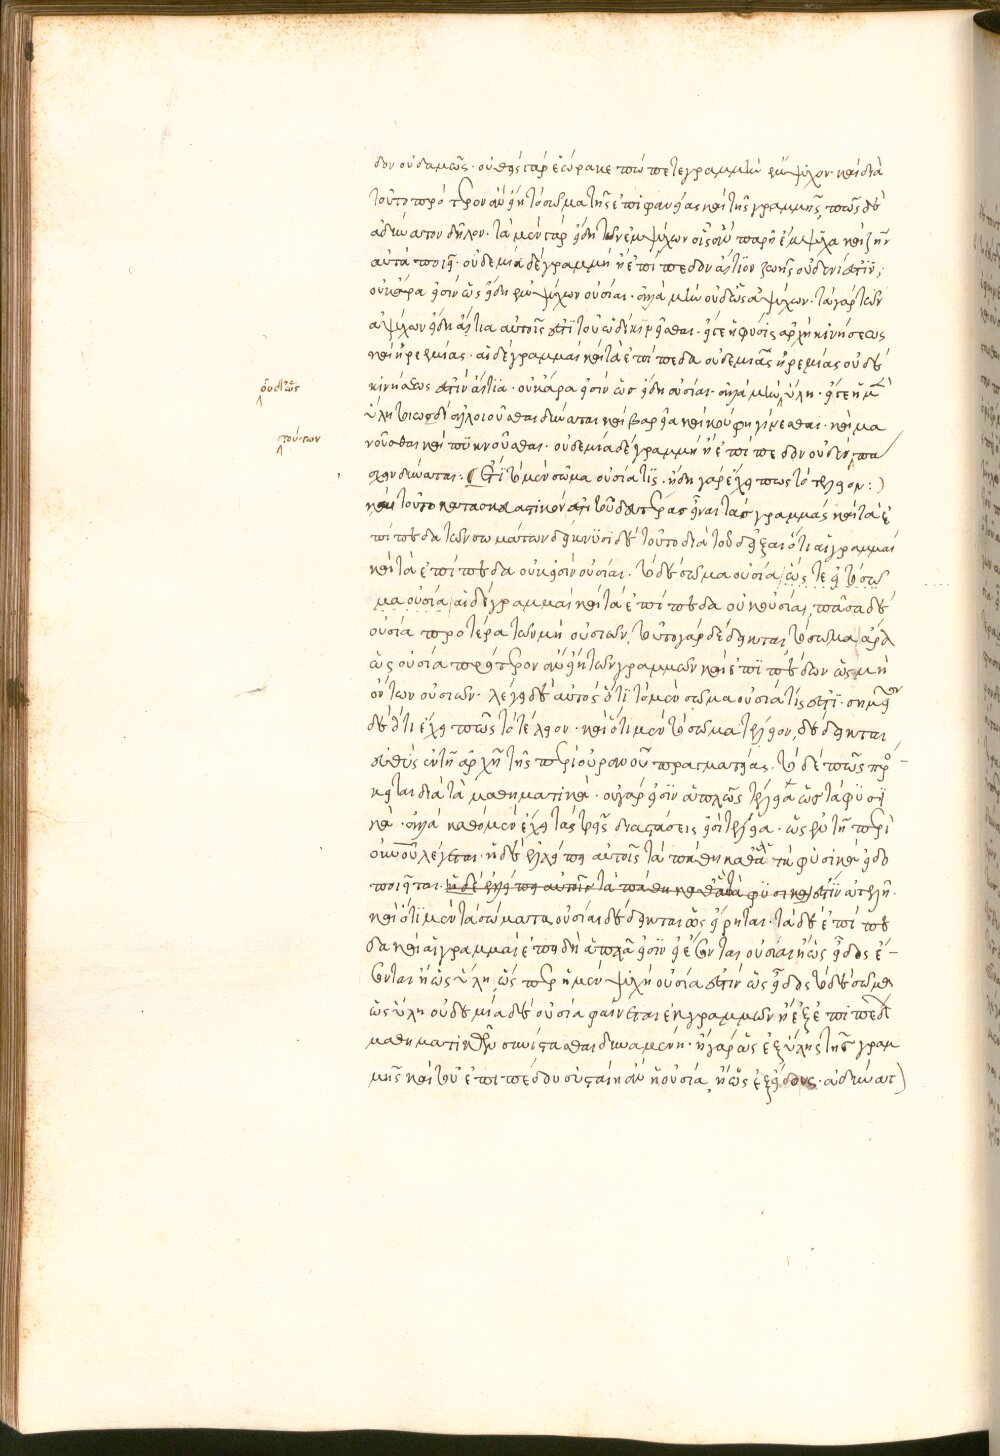 δον οὐδαμῶς. οὐθεὶς γὰρ ἑώρακε πώποτε γραμμὴν ἔμψυχον. καὶ διὰ
τοῦτο πρότερον ἂν εἴη τὸ σῶμα τῆς ἐπιφανείας καὶ τῆς γραμμῆς, πῶς δὲ
ἀδύνατον δῆλον. τὰ μὲν γὰρ εἴδη τῶν ἐμψύχων οἷς ἂν παρῇ ἔμψυχα καὶ ζῆν
αὐτὰ ποιεῖ. οὐδεμία δὲ γραμμὴ ἢ ἐπίπεδον αἴτιον ζωῆς οὐδενί ἐστιν,
οὐκ ἄρα εἰσὶν ὡς εἴδη ἐμψύχων οὐσίαι. ἀλλὰ μὴν οὐδ' ὡς ἀψύχων. τὰ γὰρ τῶν
ἀψύχων εἴδη αἴτια αὐτοῖς ἐστι τοῦ ὡδὶ κινεῖσθαι. εἴγε ἡ φύσις ἀρχὴ κινήσεως
καὶ ἠρεμίας. αἱ δὲ γραμμαὶ καὶ τὰ ἐπίπεδα οὐδεμιᾶς ἠρεμίας οὐδὲ
οὐδ' ὡς
κινήσεώς ἐστιν αἴτια. οὐκ ἄρα εἰσὶν ὡς εἴδη οὐσίαι. ἀλλὰ μὴν ὕλη. εἴγε ἡ μὲν
ὕλη ἀλλοιοῦσθαι δύναται καὶ βαρεῖα καὶ κούφη γίνεσθαι. καὶ μα
τούτων
νοῦσθαι καὶ πυκνοῦσθαι. οὐδεμία δὲ γραμμὴ ἢ ἐπίπεδον οὐδὲν πα
σχειν δύναται. Ἔτι τὸ μὲν σῶμα οὐσία τις. ἤδη γὰρ ἔχει πως τὸ τέλειον:
καὶ τοῦτο κατασκευαστικόν ἐστι τοῦ δευτέρας εἶναι τὰς γραμμὰς καὶ τὰ ἐ
πίπεδα τῶν σωμάτων δείκνυσι δὲ τοῦτο διὰ τοῦ δεῖξαι ὅτι αἱ γραμμαὶ
καὶ τὰ ἐπίπεδα οὐκ εἰσὶν οὐσίαι. τὸ δὲ σῶμα οὐσία, ὥστε εἰ τὸ σῶ
μα οὐσία, αἱ δὲ γραμμαὶ καὶ τὰ ἐπίπεδα οὐκ οὐσίαι, πᾶσα δὲ
οὐσία προτέρα τῶν μὴ οὐσιῶν, τοῦτο γὰρ δέδεικται, τὸ σῶμα ἄρα
ὡς οὐσία πρότερον ἂν εἴη τῶν γραμμῶν καὶ ἐπιπέδων ὡς μὴ
ὄντων οὐσιῶν. λέγει δὲ αὐτὸς ὅτι τὸ μὲν σῶμα οὐσία τίς ἐστι. σημεῖον
δὲ ὅτι ἔχει πως τὸ τέλειον. καὶ ὅτι μὲν τὸ σῶμα τέλειον, δέδεικται
εὐθὺς ἐν τῇ ἀρχῇ τῆς περὶ οὐρανοῦ πραγματείας. τὸ δέ πως πρό
κειται διὰ τὰ μαθηματικά. οὐ γάρ εἰσιν ἁπλῶς τέλεια ὡς τὰ φυσι
κά. ἀλλὰ καθὸ μὲν ἔχει τὰς τρεῖς διαστάσεις εἰσὶ τέλεια. ὡς ἐν τῇ περὶ
οὐρανοῦ λέγεται. ᾗ δὲ ἐλλείπει αὐτοῖς τὰ πάθη καθ' ἃ τὰ φυσικὰ εἰδο
ποιεῖται. ᾗ δὲ ἐλλείπει αὐτοῖς τὰ πάθη καθ' ἃ τὰ φυσικὰ ἐστὶν ἀτελῆ.
καὶ ὅτι μὲν τὰ σώματα οὐσίαι δέδεικται ὡς εἴρηται. τὰ δὲ ἐπίπε
δα καὶ αἱ γραμμαὶ ἐπειδὴ ἁπλᾶ εἰσιν εἰ ἔσονται οὐσίαι ἢ ὡς εἶδος ἔ-
σονται ἢ ὡς ὕλη, ὥσπερ ἡ μὲν ψυχὴ οὐσία ἐστὶν ὡς εἶδος τὸ δὲ σῶμα
ὡς ὕλη οὐδεμία δὲ οὐσία φαίνεται ἐκ γραμμῶν ἢ ἐξ ἐπιπέδων
μαθηματικῶν συνίστασθαι δυναμένη. ἢ γὰρ ὡς ἐξ ὕλης τῆς γραμ
μῆς καὶ τοῦ ἐπιπέδου συσταίη ἂν ἡ οὐσία, ἢ ὡς ἐξ εἴδους. ἀδύνατ